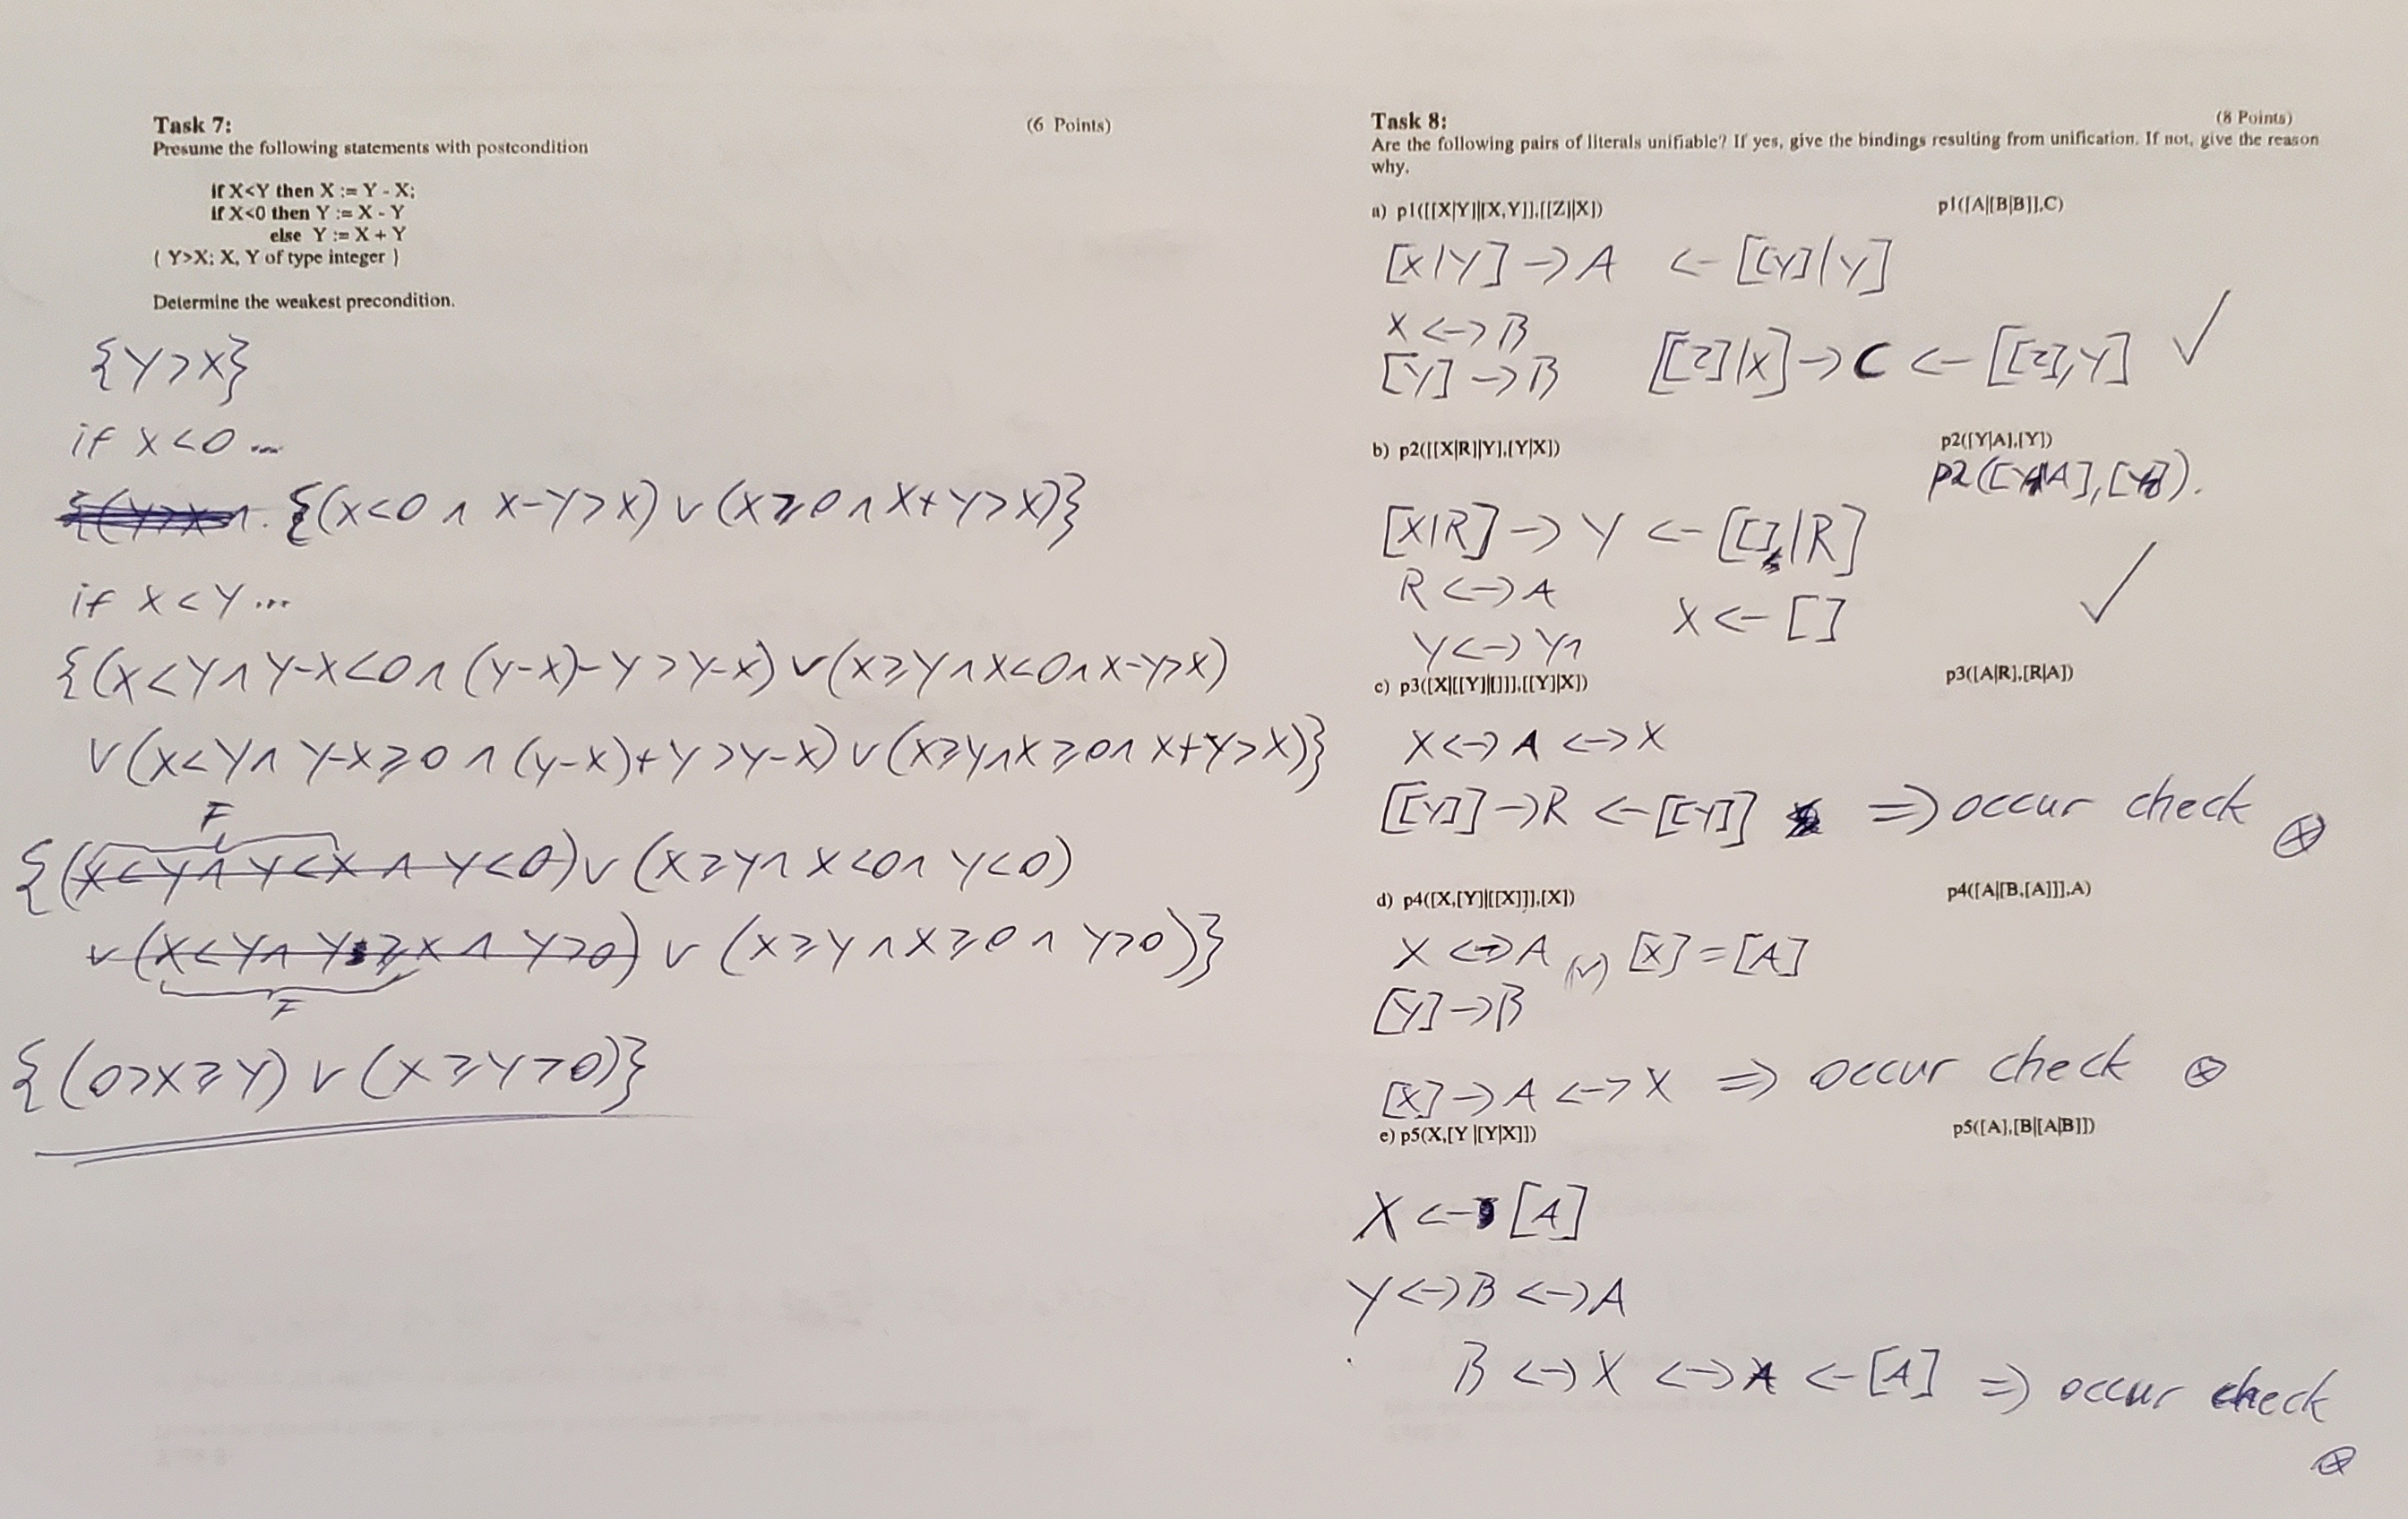 Task 7:
(6 Points)
Presume the following statements with postcondition
if X<Y then X := Y - X;
if X<0 then Y := X - Y
else Y := X + Y
{ Y>X; X, Y of type integer }
Determine the weakest precondition.
{Y>X}
if X<0 ...
{(X<0 ∧ X-Y>X) ∨ (X≥0 ∧ X+Y>X)}
if X<Y ...
{(X<Y ∧ Y-X<0 ∧ (Y-X)-Y>Y-X) ∨ (X≥Y ∧ X<0 ∧ X-Y>X)
∨ (X<Y ∧ Y-X≥0 ∧ (Y-X)+Y>Y-X) ∨ (X≥Y ∧ X≥0 ∧ X+Y>X)}
F
{(X<Y ∧ Y<X ∧ Y<0) ∨ (X≥Y ∧ X<0 ∧ Y<0)
∨ (X<Y ∧ Y≥X ∧ Y>0) ∨ (X≥Y ∧ X≥0 ∧ Y>0)}
F
{(0>X≥Y) ∨ (X≥Y>0)}
Task 8:
(8 Points)
Are the following pairs of literals unifiable? If yes, give the bindings resulting from unification. If not, give the reason
why.
a) p1([[X|Y]|[X,Y]],[[Z]|X]) p1([A|[B|B]],C)
[X|Y] → A ← [[Y]|Y]
X <-> B
[Y] → B [[Z]|X] → C ← [[Z],Y] ✓
b) p2([[X|R]|Y],[Y|X]) p2([Y|A],[Y])
p2([Y1|A],[Y1]).
[X|R] → Y ← [[]|R]
R <-> A X ← [] ✓
Y <-> Y1
c) p3([X|[[Y]|[]]],[[Y]|X]) p3([A|R],[R|A])
X <-> A <-> X
[[Y]] → R ← [[Y]] ⇒ occur check ⊗
d) p4([X,[Y]|[[X]]],[X]) p4([A|[B,[A]]],A)
X <-> A (✓) [X] = [A]
[Y] → B
[X] → A <-> X ⇒ occur check ⊗
e) p5(X,[Y |[Y|X]]) p5([A],[B|[A|B]])
X ← [A]
Y <-> B <-> A
B <-> X <-> A ← [A] ⇒ occur check
⊗